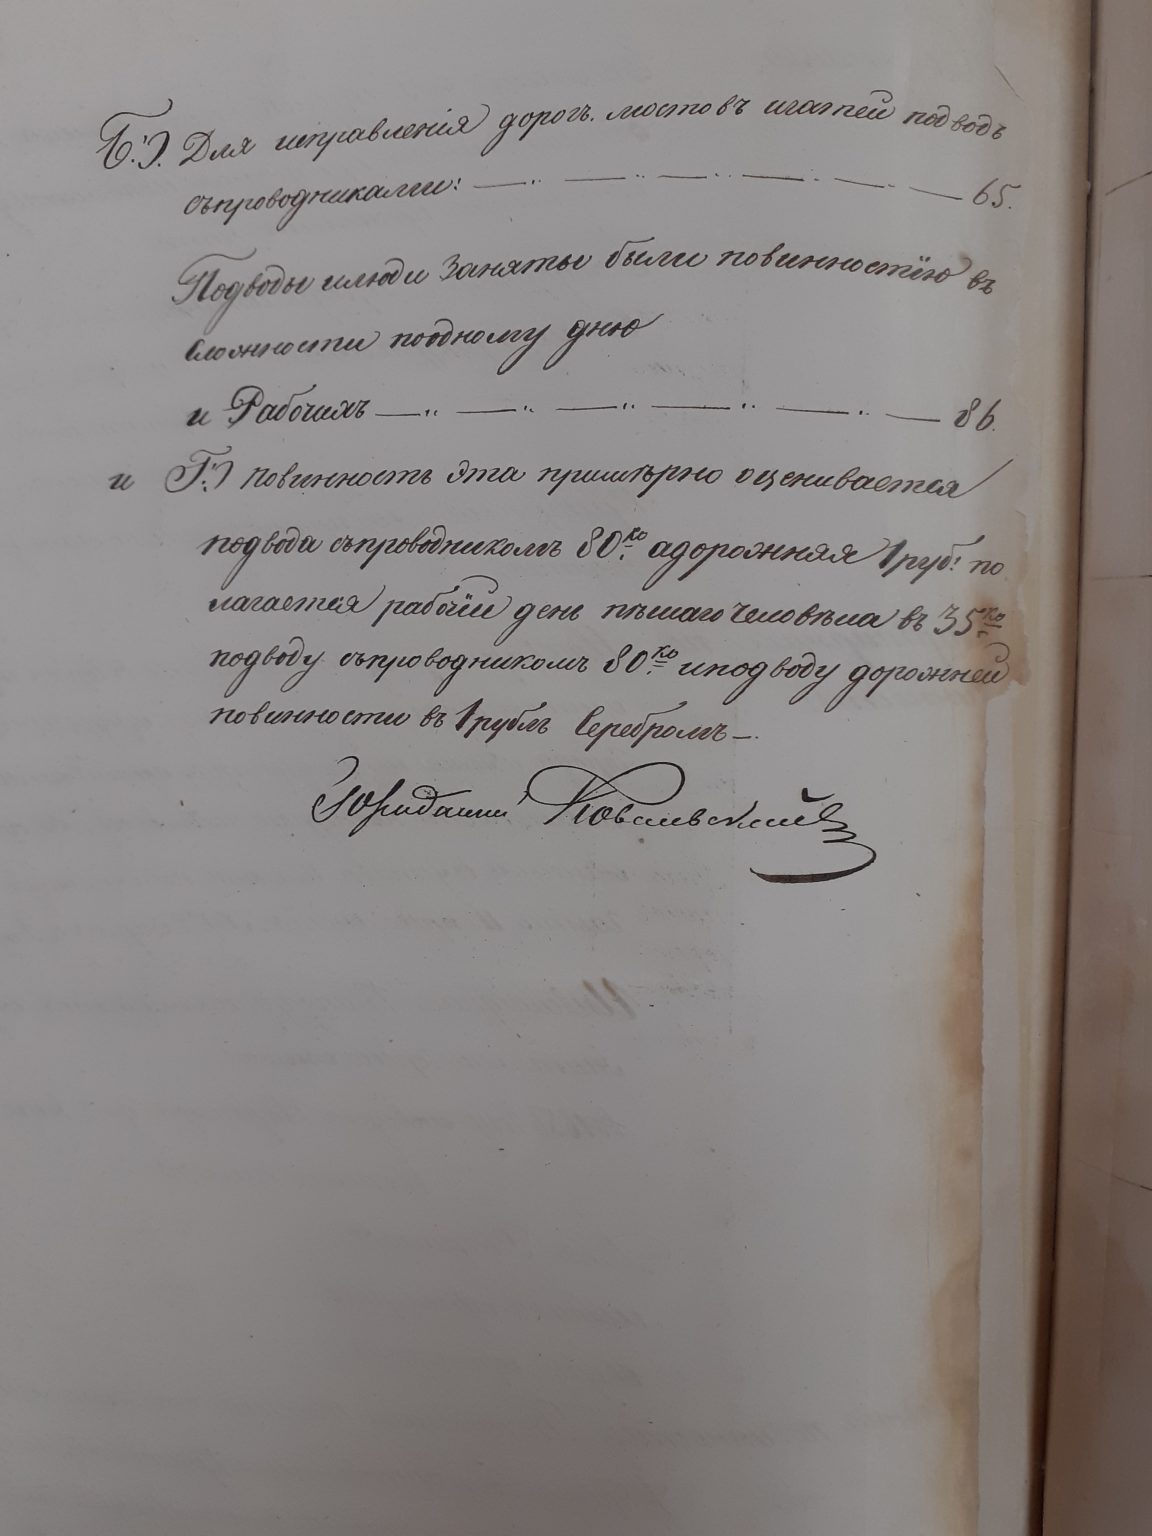 Б.) Для исправленія дорогъ. мостовъ игатей подводъ
съпроводниками: — " — — " — " — — 65.
Подводы илюди заняты были повинностїю въ
сложности поодному дню
и Рабочихъ — " — " — " — " — " — 86.
и Г.) повинность эта примѣрно оценивается
подвода съпроводникомъ 80 ко адорожняя 1 руб: по
лагается рабочїй день пѣшаго человѣка въ 35 ко
подводу съпроводникомъ 80 ко иподводу дорожней
повинности въ 1 рубль Серебромъ —.
Ковальскій